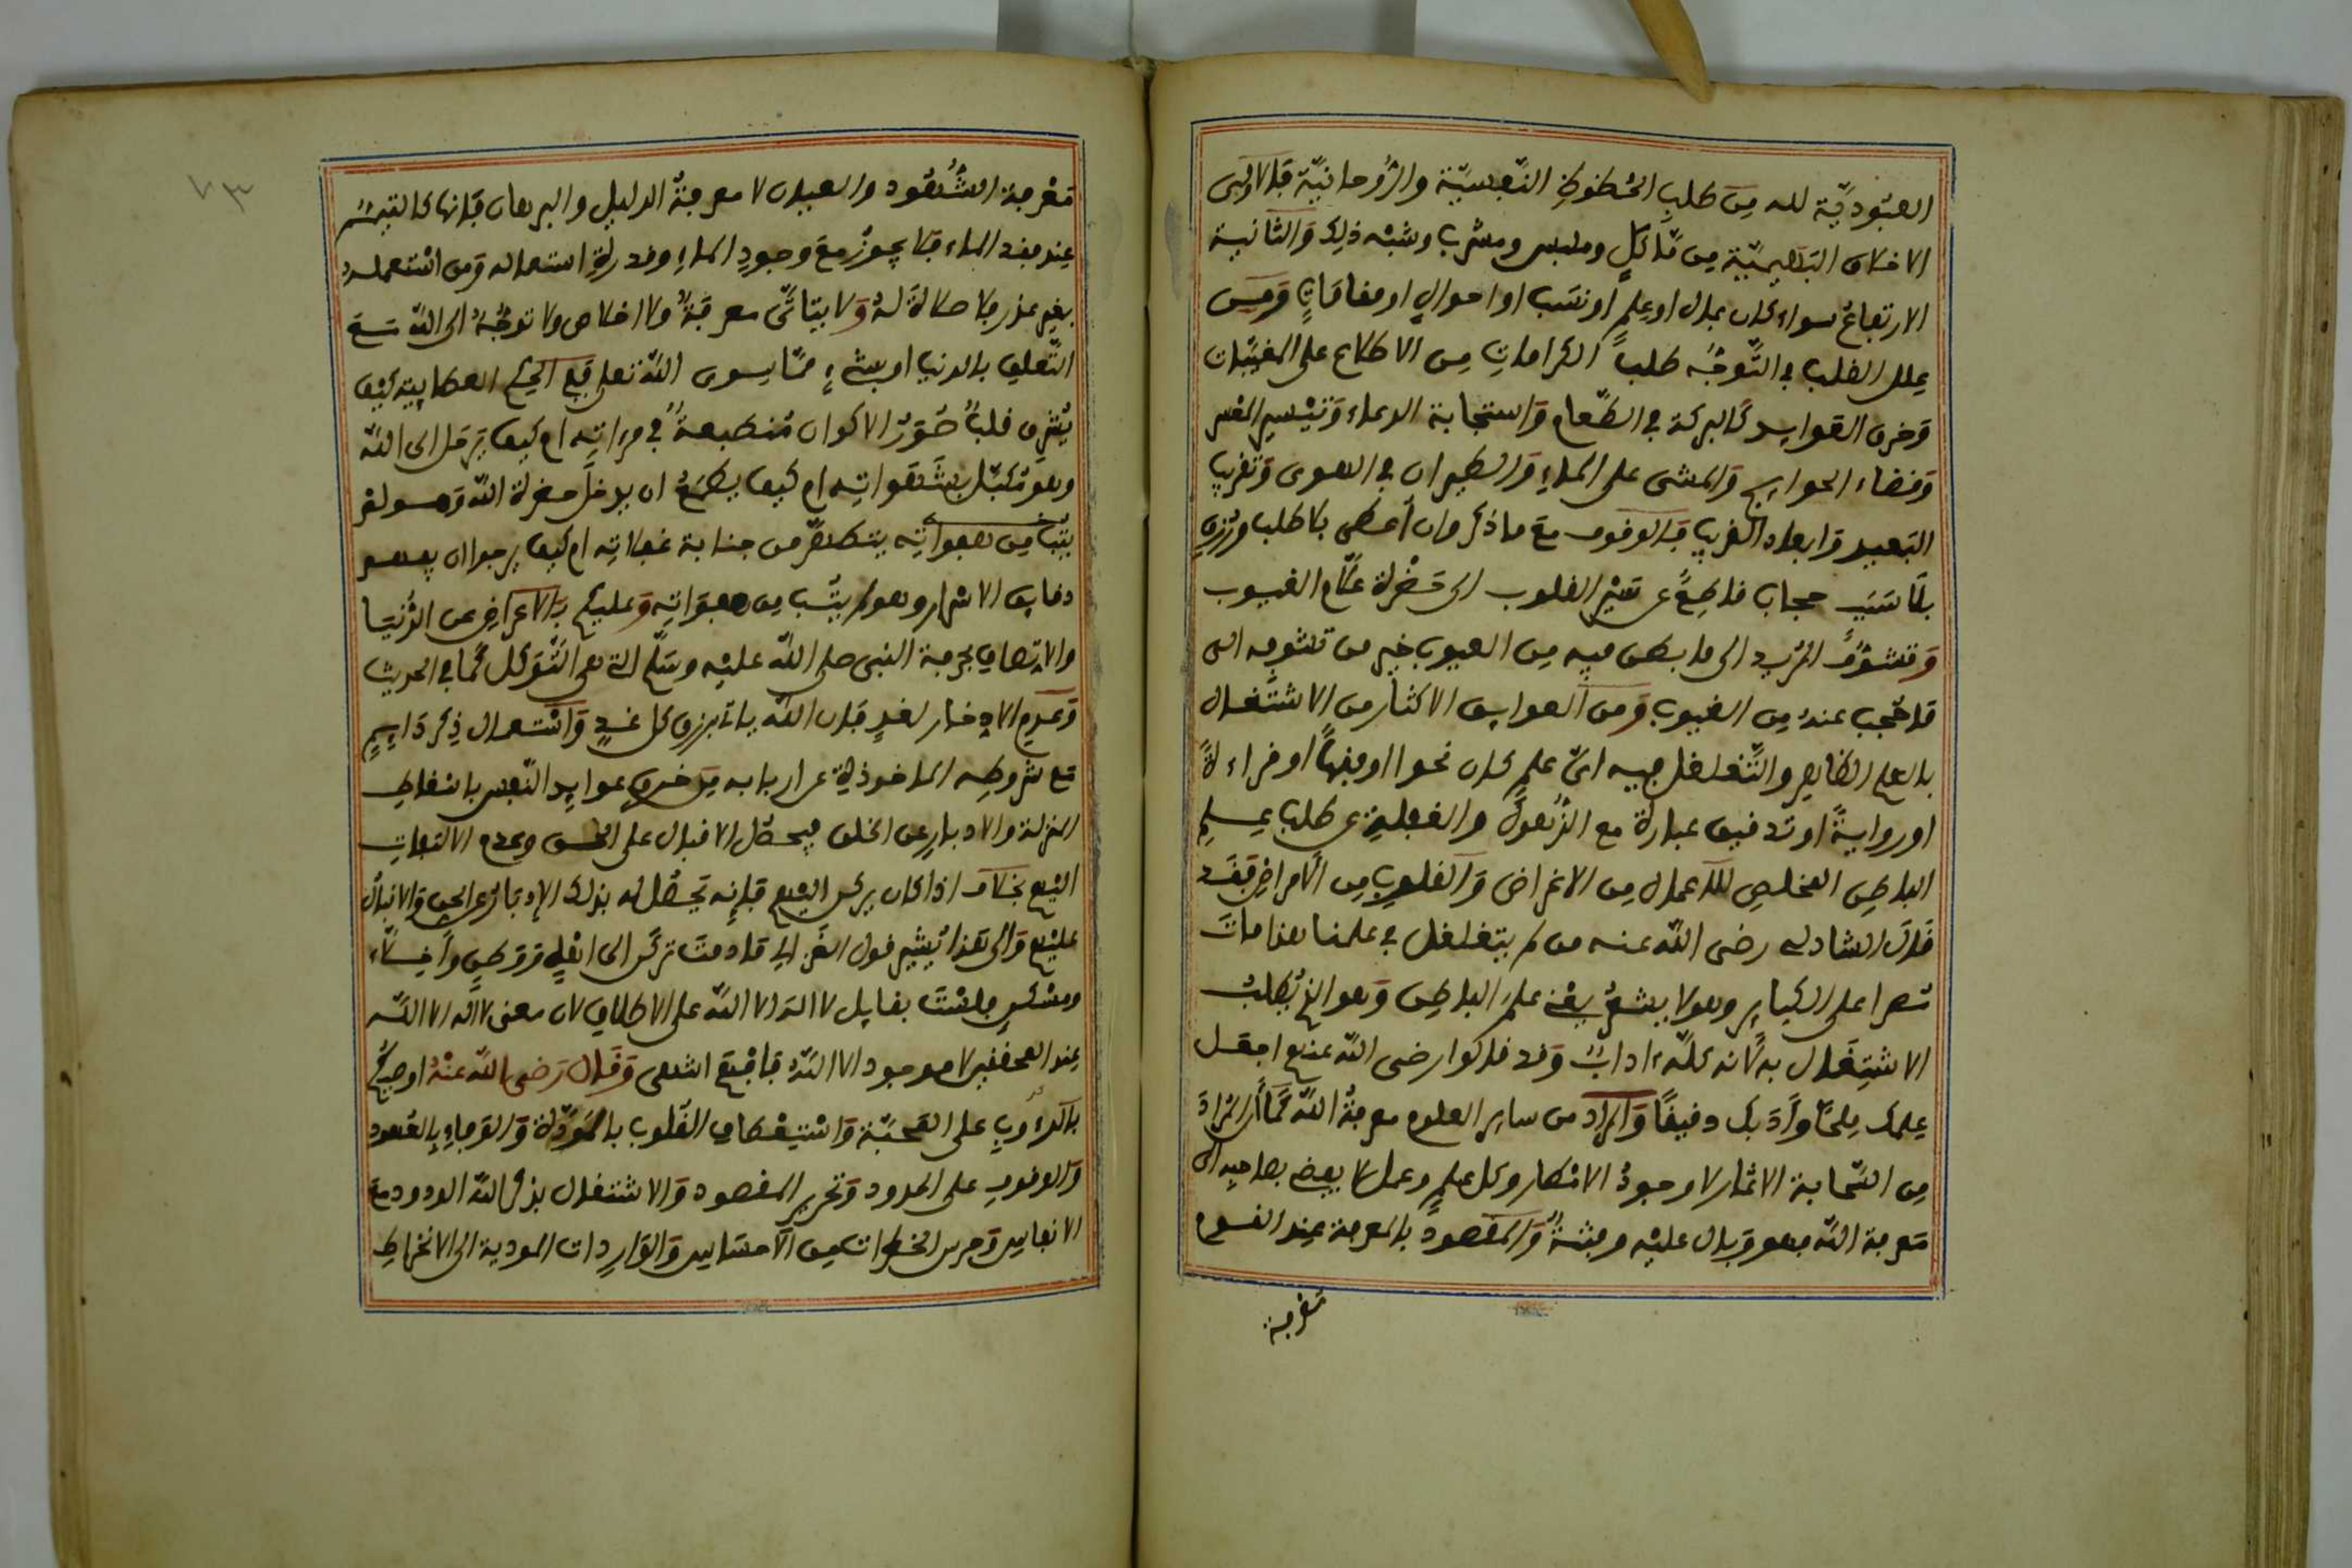 العبوديّة لله مِن طلب الحُظوظِ النّفسيّة والرّوحانيّة فالاولى
الاخلاق البَهيميّة مِن مَأكلٍ وملبس ومشرب وشبْه ذلِك وَالثانية
الارتفاعُ سواء كان بمال او عِلمٍ او نسَب او احوالٍ او مقاماتٍ وَمِن
عِلل القلب في التّوجّه طلبُ الكرامات مِن الاطلاع على المغيّبات
وَخرق العَوايد كالبركة في الطّعام وَاستجابة الدعاء وَتيْسير المعسر
وَقضاء الحوايج وَالمشى على الماءِ وَالطيران في الهوى وَتقريب
البَعيد وَابعاد القريب فالوقوف مع ما ذكر وان أعطى بلا طلب ورُزق
بلا سَبَب حجاب قاطِعٌ عن سَيْر القلوب الى حَضْرة علاّم الغيوب
وَتشوّفُ المُريد الى ما بطن فيه مِن العيوب خير من تشوفه الى
ما حُجب عنه مِن الغيوب وَمن العوايق الاكثار من الاشتغال
بالعلم الظاهر والتّغلغل فيه اىّ علمٍ كان نحوا او فقهًا او قراءة
او روايةً او تدقيق عبارة مع الذّهول والغفلة عن طلب عِلم
الباطِن المخلص للاعمال مِن الاغراض وَالقلوب مِن الامراض فقد
قالَ الشاذلى رضى الله عنه من لم يتغلغل في علمنا هذا ماتَ
مُصرا على الكبائر وهو لا يشعُر يعْنى علمَ الباطِن وَهو الذي يُطلبُ
الاشتغال به لانه كلّه ءادابٌ وَقد قالوا رضى الله عنهم اجعل
عِلمك مِلحًا وَأدَبك دقيقًا وَالمراد من ساير العلوم معرفةُ الله كما أن المُرادَ
مِن السّحابة الامطار لا وجودُ الامطار وكل علمٍ وعمل لا يفضى بصاحِبه الى
مَعرفة الله فهو وَبال عليْه وفتنةٌ وَالمقصودُ بالمعرفة عِند القوم
مَعْرفة
مَعْرفة الشُّهُود والعيان لا معرفةُ الدليل والبرهان فإنها كالتيمّم
عِند فقد الماء فلا يجوزُ معَ وجودِ الماءِ وقدرة استعماله وَمن اسْتعمله
بغير عذر فلا صلاةَ لهُ وَلا يتأتّى معرفةٌ ولا اخلاص ولا توجُّهٌ الى الله مَعَ
التّعلق بالدنيا او بشيءٍ ممّا سوى الله تعلى ففي الحِكم العطاييّة كيْفَ
يُشرق قلبٌ صُوَرُ الاكوان مُنطبعةٌ في مرءاتِه ام كيف يَرحَل الى الله
وهو مُكبّل بشَهَواتِه ام كيف يطمَعُ ان يدخلَ حضرة الله وَهو لم
يتطهّر من جنابة غفلاتِه ام كيف يرجوا ان يفهم
دقايق الاسْرار وهو لم يَتُب مِن هفوَاتِه وَعليكم بالاعراضِ عن الدُّنيَا
والاتِّصافِ بحرفة النبى صلى الله عليْه وسَلّم التى هى التّوكل كما في الحديث
وَعَدم الادخار لغدٍ فان الله يأتى برزق كل غدٍ وَاسْتعمال ذِكر دَايمٍ
مع شروطِه الماخوذة عن اربابه مِن خرق عوايد النّفس باسْقاطِ
المنزلة والادبار عن الخلق فيحصُل الاقبال على الحق وعدم الالتفات
اليْهم بخلاف اذا كان يركن اليهم فإنه يَحصُل له بذلك الإدبارُ عن الحق وَالاقبالُ
عليْهم وَالى هَذا يُشير قول الغزالي ما دمتَ تركن الى اهْلٍ وَوَطنٍ وأخِلاّء
ومسْكنٍ فلسْتَ بقايل لا اله الا الله على الاطلاق لان معنى لا اله الا الله
عِند المحققين لا موجود الا اللهُ فافهَمْ انتهى وَقال رَضى الله عنْهُ اوصيكُم
بالدُّؤُوبِ على المَحبّة وَاسْتِعْطافِ القُلوب بالمَوَدّة وَالوَفاءِ بالعُهود
وَالوقوف على الحدود وَتحرير المقصود وَالاشتغال بذكر الله الودود مع
الانفاس وَحرس الخطرات مِن الاحسَاسِ وَالوَارِدات المودية الى الانخراط
٧٣